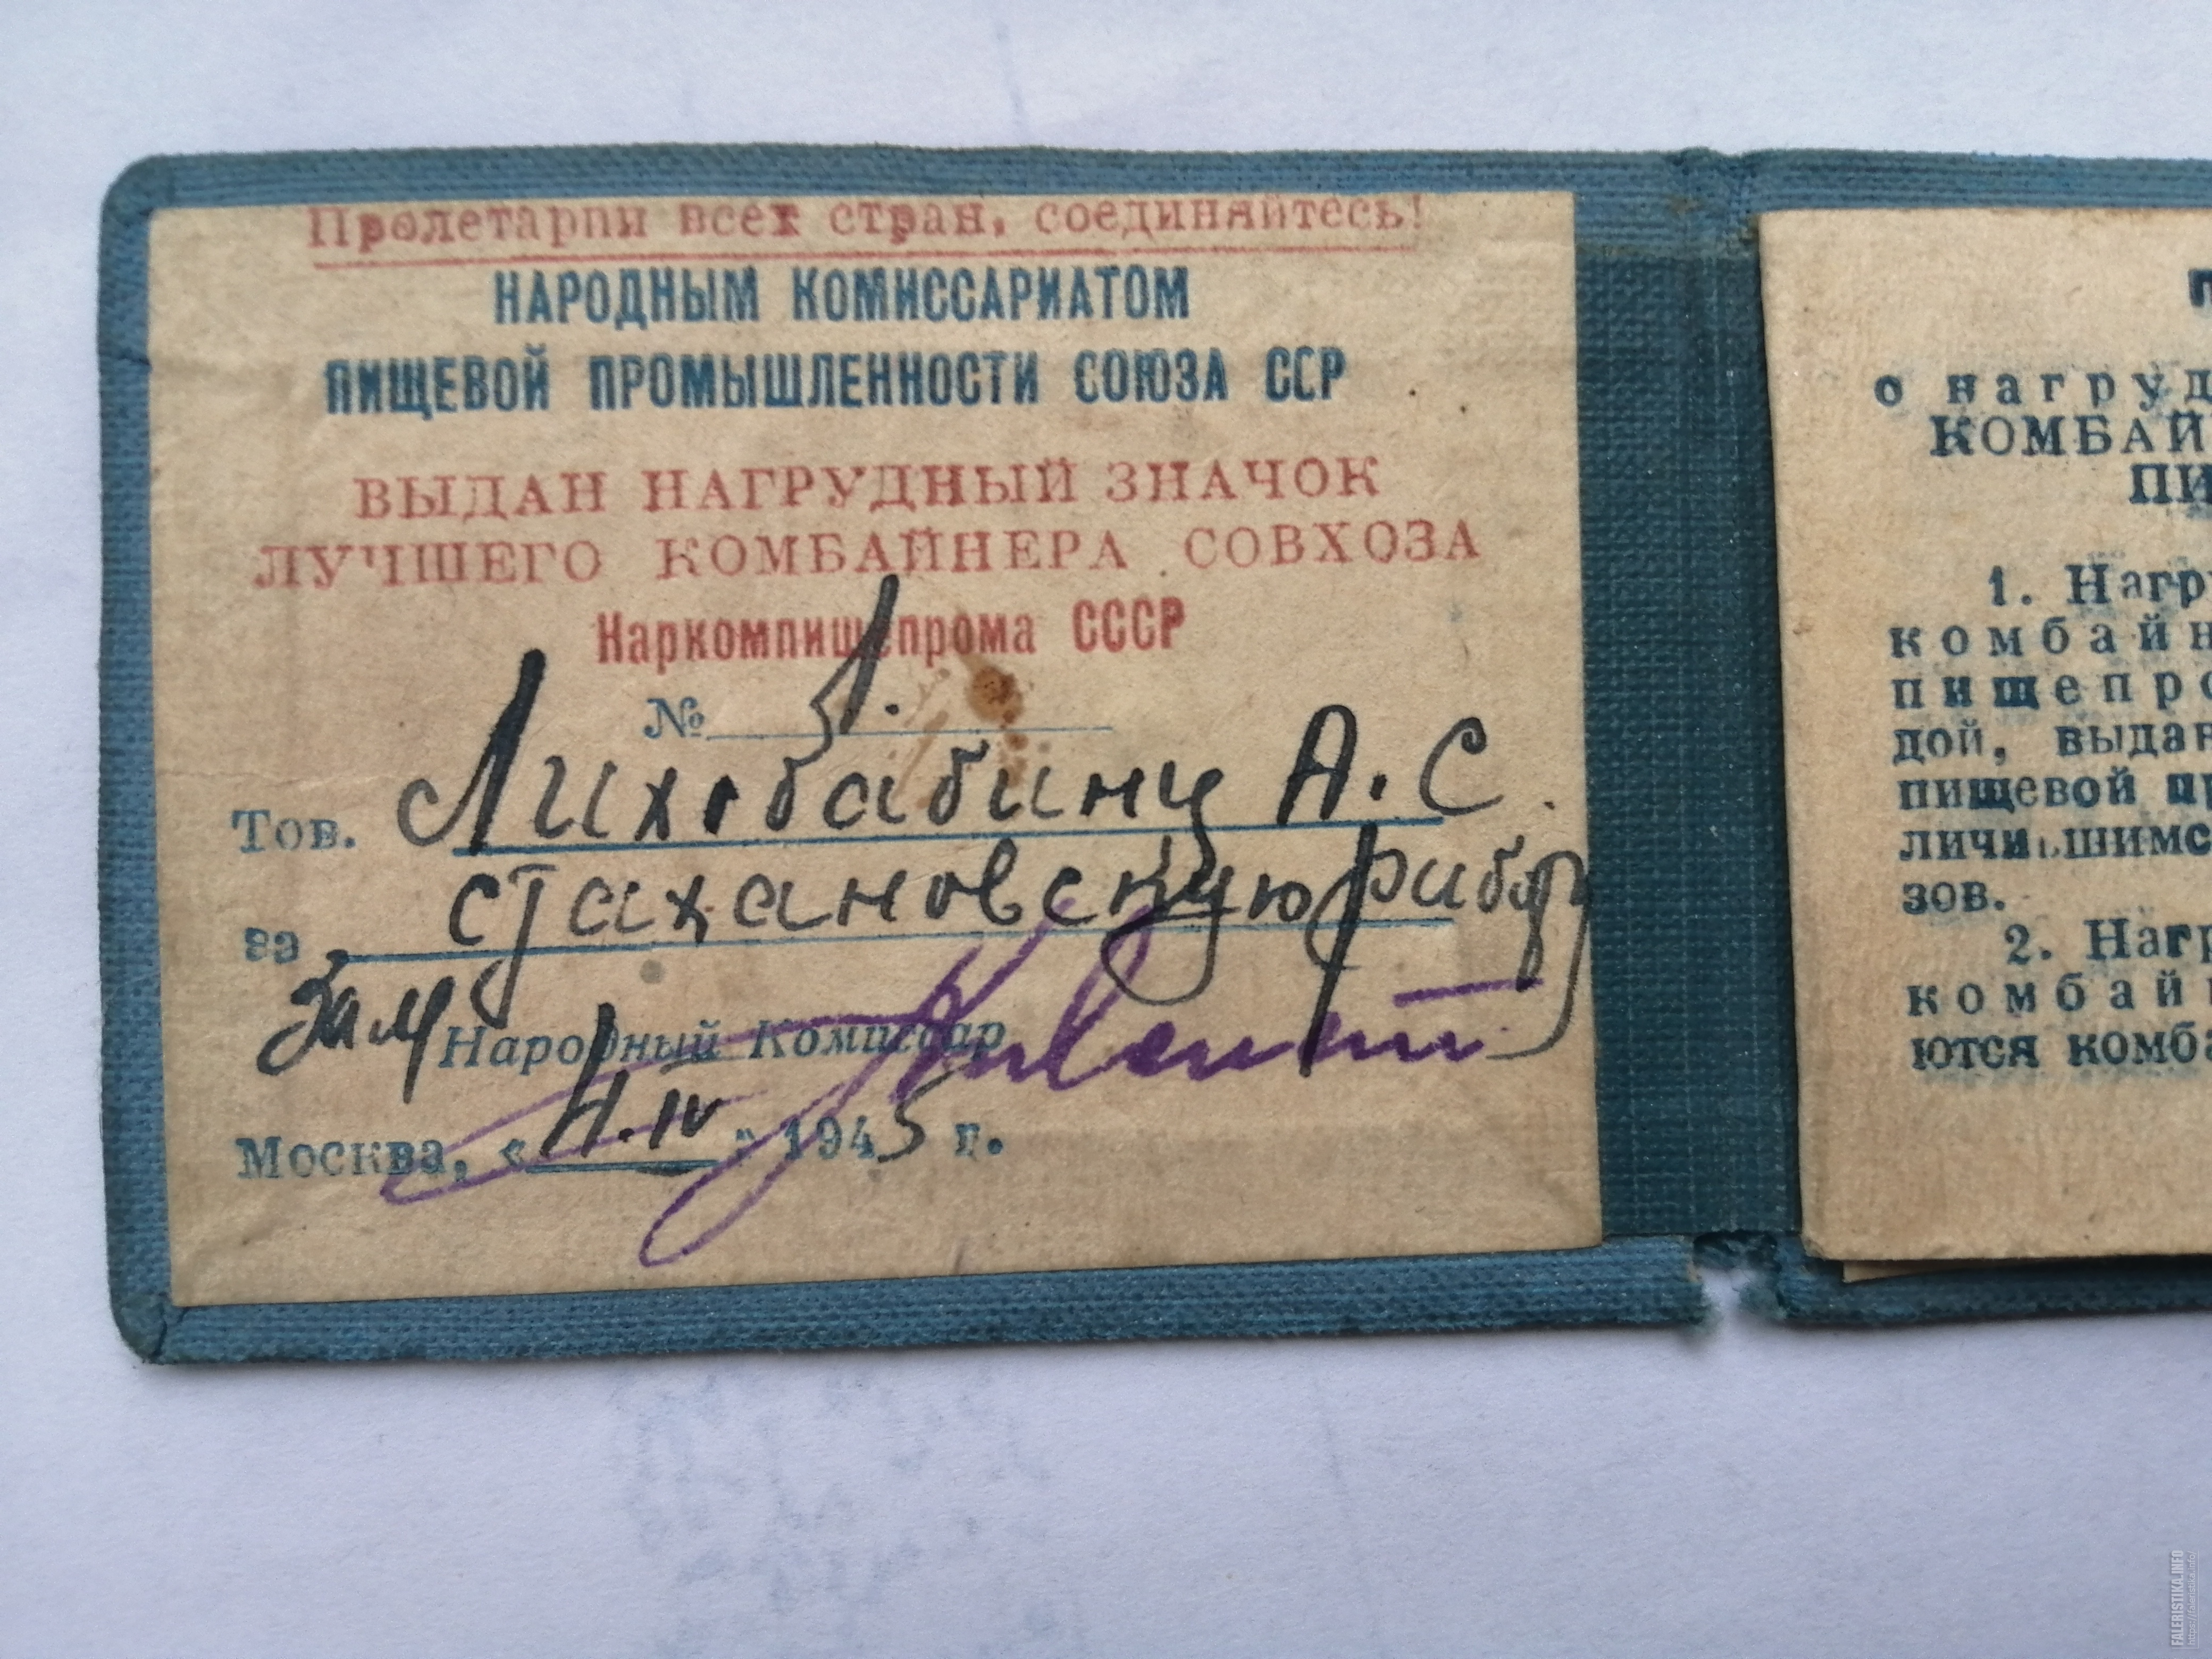 Пролетарии всех стран, соединяйтесь!
НАРОДНЫМ КОМИССАРИАТОМ
ПИЩЕВОЙ ПРОМЫШЛЕННОСТИ СОЮЗА ССР
ВЫДАН НАГРУДНЫЙ ЗНАЧОК
ЛУЧШЕГО КОМБАЙНЕРА СОВХОЗА
Наркомпищепрома СССР
№ 1.
Тов. Лихобабину А. С.
за стахановскую работу
Зам Народный Комиссар
Москва, « IV » 1945 г.
П
о нагруд
КОМБАЙ
ПИ
1. Нагру
комбайн
пищепро
дой, выдан
пищевой пр
личившимс
зов.
2. Нагр
комбай
ются комба
FALERISTIKA.INFO
https://faleristika.info/